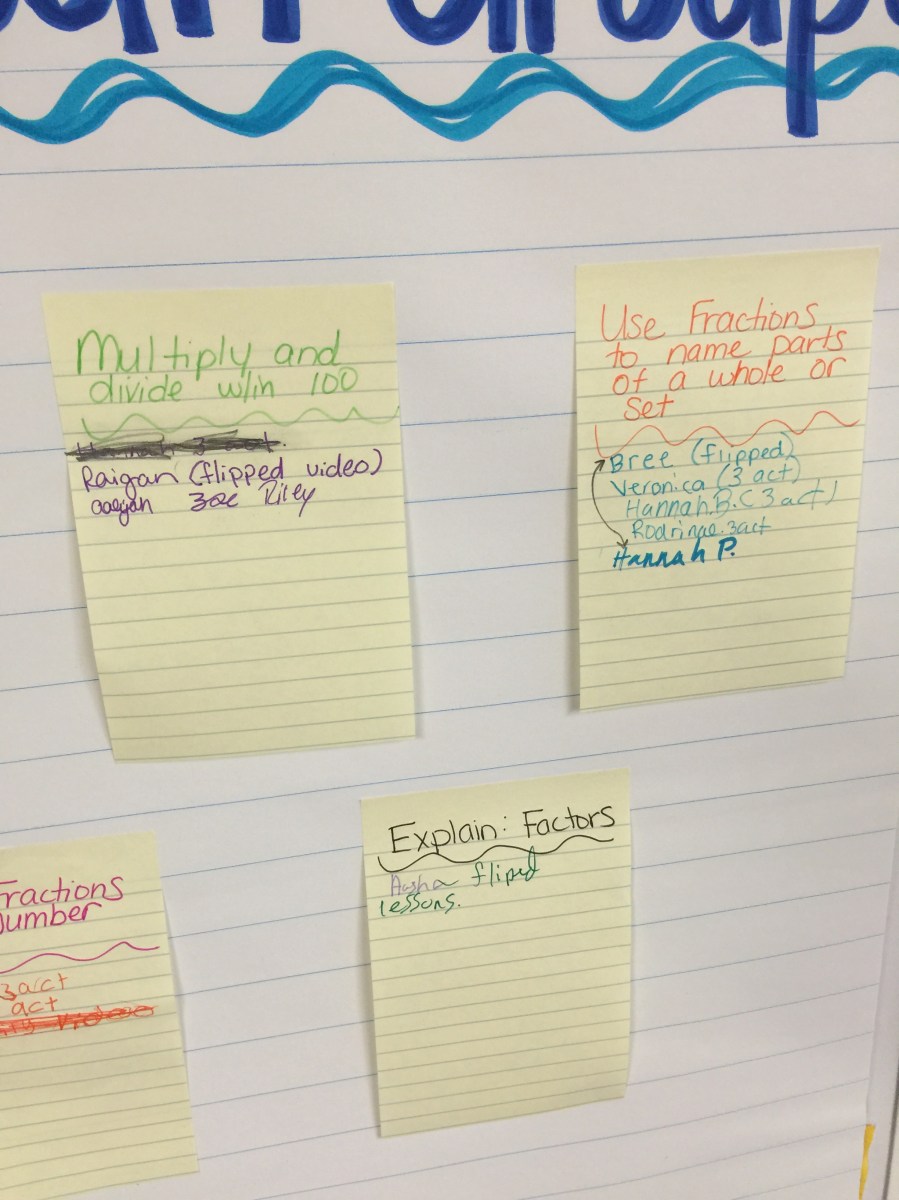 Multiply and
divide w/in 100
3 act.
Raigan (flipped video)
Riley
Use Fractions
to name parts
of a whole or
Set
Bree (flipped)
Veronica (3 act)
Hannah.B.(3 act)
3act
Hannah P.
Fractions
Number
3act
act
Explain: Factors
Aisha fliped
lessons.